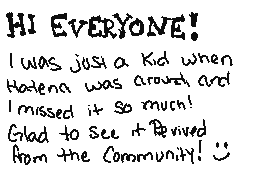 HI EVERYONE!
I was just a kid when
Hatena was around and
I missed it so much!
Glad to see it Revived
from the Community! :)